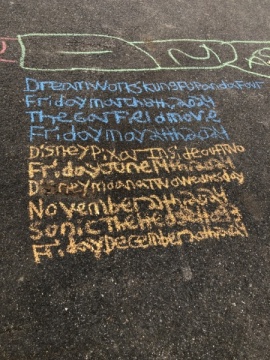 DreamWorks KungFu Panda Four
Friday march 8th, 2024
The Garfield movie
Friday may 24th, 2024
Disney Pixar Inside out Two
Friday June 14th, 2024
Disney moana Two Wednesday
November 27th, 2024
Sonic The Hedgehog 3
Friday December 20th, 2024